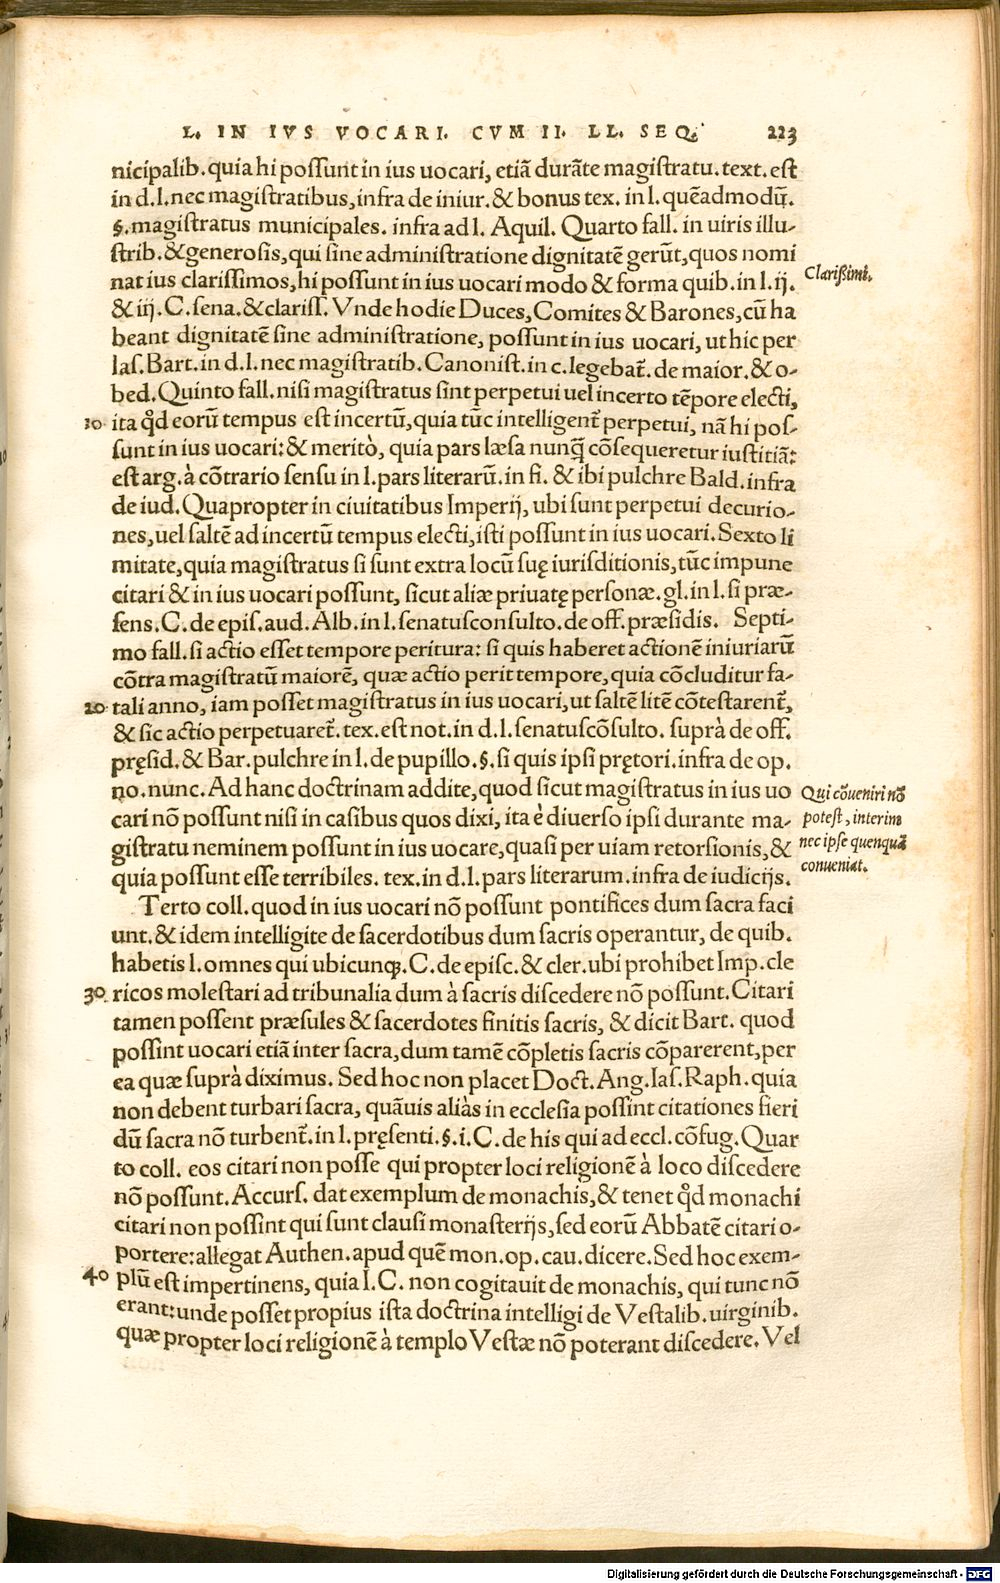 L. IN IVS VOCARI. CVM II. LL. SEQ. 223
nicipalib. quia hi possunt in ius uocari, etiā durāte magistratu. text. est
in d.l. nec magistratibus, infra de iniur. & bonus tex. in l. quēadmodū.
§. magistratus municipales. infra ad l. Aquil. Quarto fall. in uiris illu-
strib. & generosis, qui sine administratione dignitatē gerūt, quos nomi
nat ius clarissimos, hi possunt in ius uocari modo & forma quib. in l. ij.
Clarißimi.
& iij. C. sena. & clariss. Vnde hodie Duces, Comites & Barones, cū ha
beant dignitatē sine administratione, possunt in ius uocari, ut hic per
Ias. Bart. in d.l. nec magistratib. Canonist. in c. legebat̃. de maior. & o-
bed. Quinto fall. nisi magistratus sint perpetui uel incerto tēpore electi,
10 ita qd̃ eorū tempus est incertū, quia tūc intelligent̃ perpetui, nā hi pos-
sunt in ius uocari: & meritò, quia pars læsa nunq̃ cōsequeretur iustitiā:
est arg. à cōtrario sensu in l. pars literarū. in fi. & ibi pulchre Bald. infra
de iud. Quapropter in ciuitatibus Imperij, ubi sunt perpetui decurio-
nes, uel saltē ad incertū tempus electi, isti possunt in ius uocari. Sexto li
mitate, quia magistratus si sunt extra locū suę iurisditionis, tūc impune
citari & in ius uocari possunt, sicut aliæ priuatę personæ. gl. in l. si præ-
sens. C. de epis. aud. Alb. in l. senatusconsulto. de off. præsidis. Septi-
mo fall. si actio esset tempore peritura: si quis haberet actionē iniuriarū
cōtra magistratū maiorē, quæ actio perit tempore, quia cōcluditur fa-
20 tali anno, iam posset magistratus in ius uocari, ut saltē litē cōtestarent̃,
& sic actio perpetuaret̃. tex. est not. in d.l. senatuscōsulto. suprà de off.
pręsid. & Bar. pulchre in l. de pupillo. §. si quis ipsi prętori. infra de op.
no. nunc. Ad hanc doctrinam addite, quod sicut magistratus in ius uo
cari nō possunt nisi in casibus quos dixi, ita è diuerso ipsi durante ma-
gistratu neminem possunt in ius uocare, quasi per uiam retorsionis, &
quia possunt esse terribiles. tex. in d.l. pars literarum. infra de iudicijs.
Qui cōueniri nō
potest, interim
nec ipse quenquā
conueniat.
Terto coll. quod in ius uocari nō possunt pontifices dum sacra faci
unt. & idem intelligite de sacerdotibus dum sacris operantur, de quib.
habetis l. omnes qui ubicunq;. C. de episc. & cler. ubi prohibet Imp. cle
30 ricos molestari ad tribunalia dum à sacris discedere nō possunt. Citari
tamen possent præsules & sacerdotes finitis sacris, & dicit Bart. quod
possint uocari etiā inter sacra, dum tamē cōpletis sacris cōparerent, per
ea quæ suprà diximus. Sed hoc non placet Doct. Ang. Ias. Raph. quia
non debent turbari sacra, quāuis aliàs in ecclesia possint citationes fieri
dū sacra nō turbent̃. in l. pręsenti. §. i. C. de his qui ad eccl. cōfug. Quar
to coll. eos citari non posse qui propter loci religionē à loco discedere
nō possunt. Accurs. dat exemplum de monachis, & tenet qd̃ monachi
citari non possint qui sunt clausi monasterijs, sed eorū Abbatē citari o-
portere: allegat Authen. apud quē mon. op. cau. dicere. Sed hoc exem-
40 plū est impertinens, quia I.C. non cogitauit de monachis, qui tunc nō
erant: unde posset propius ista doctrina intelligi de Vestalib. uirginib.
quæ propter loci religionē à templo Vestæ nō poterant discedere. Vel
Digitalisierung gefördert durch die Deutsche Forschungsgemeinschaft - DFG